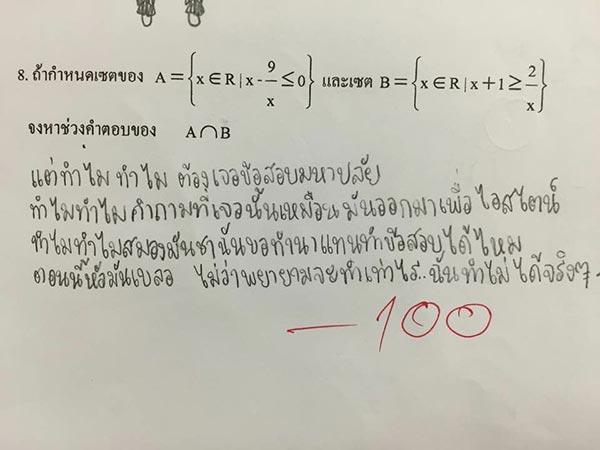 8. ถ้ากำหนดเซตของ A = {x ∈ R | x - 9/x ≤ 0} และเซต B = {x ∈ R | x + 1 ≥ 2/x}
จงหาช่วงคำตอบของ A∩B
แต่ทำไม ทำไม ต้องเจอข้อสอบมหาปลัย
ทำไมทำไม คำถามที่เจอนั้นเหมือน มันออกมาเพื่อ ไอสไตน์
ทำไมทำไมสมองมันชานั้นขอทำนาแทนทำข้อสอบได้ไหม
ตอนนี้หัวมันเบลอ ไม่ว่าพยายามจะทำเท่าไร.. นั้นทำไม่ได้จริงๆ
-100